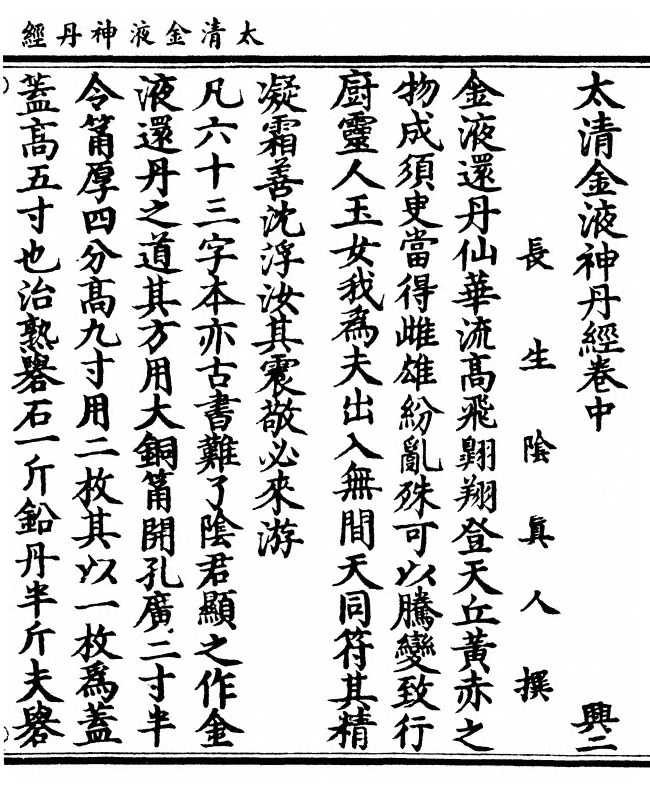 太清金液神丹經
太清金液神丹經卷中
興二
長生陰眞人撰
金液還丹仙華流高飛翺翔登天丘黃赤之
物成須叟當得雌雄紛亂殊可以騰變致行
厨靈人玉女我為夫出入無間天同符其精
凝霜善沈浮汝其震敬必來游
凡六十三字本亦古書難了陰君顯之作金
液還丹之道其方用大銅筩開孔廣二寸半
令筩厚四分高九寸用二枚其以一枚爲蓋
蓋高五寸也治熟礜石一斤鉛丹半斤夫礜